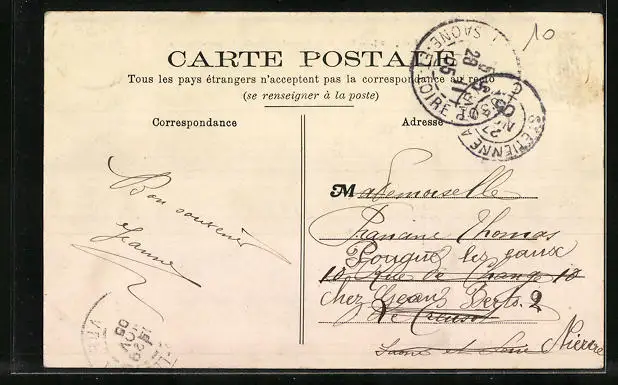 10
CARTE POSTALE
Tous les pays étrangers n'acceptent pas la correspondance au recto
(se renseigner à la poste)
Correspondance
Adresse
SAONE-ET-LOIRE
28 11 05
ST ETIENNE A
Bon souvenir
Jeanne
Mademoiselle
Thomas
Pougues les eaux
18 Rue de Change 18
chez Jean
Le Creusot
Saone et Loire Nièvre